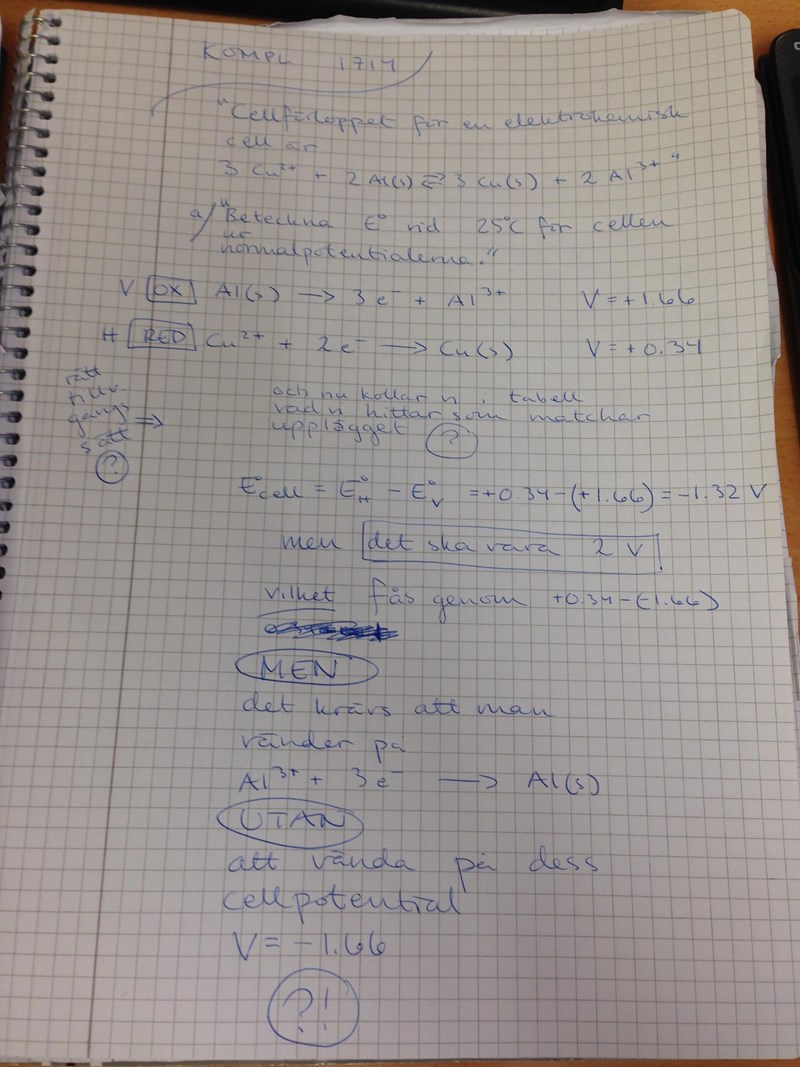 KOMPL 1714
"Cellförloppet för en elektrokemisk
cell är
3 Cu²⁺ + 2 Al(s) ⇄ 3 Cu(s) + 2 Al³⁺"
a/ "Beteckna E° vid 25°C för cellen
ur
normalpotentialerna."
V OX Al(s) → 3 e⁻ + Al³⁺ V = +1.66
H RED Cu²⁺ + 2e⁻ → Cu(s) V = +0.34
rätt
tillv.
gångs
sätt ⇒
?
och nu kollar n i tabell
vad n hittar som matchar
upplägget ?
E°cell = E°H − E°V = +0.34−(+1.66) = −1.32 V
men det ska vara 2 V!
vilket fås genom +0.34−(−1.66)
MEN
det krävs att man
vänder på
Al³⁺ + 3e⁻ → Al(s)
UTAN
att vända på dess
cellpotential
V = −1.66
?!